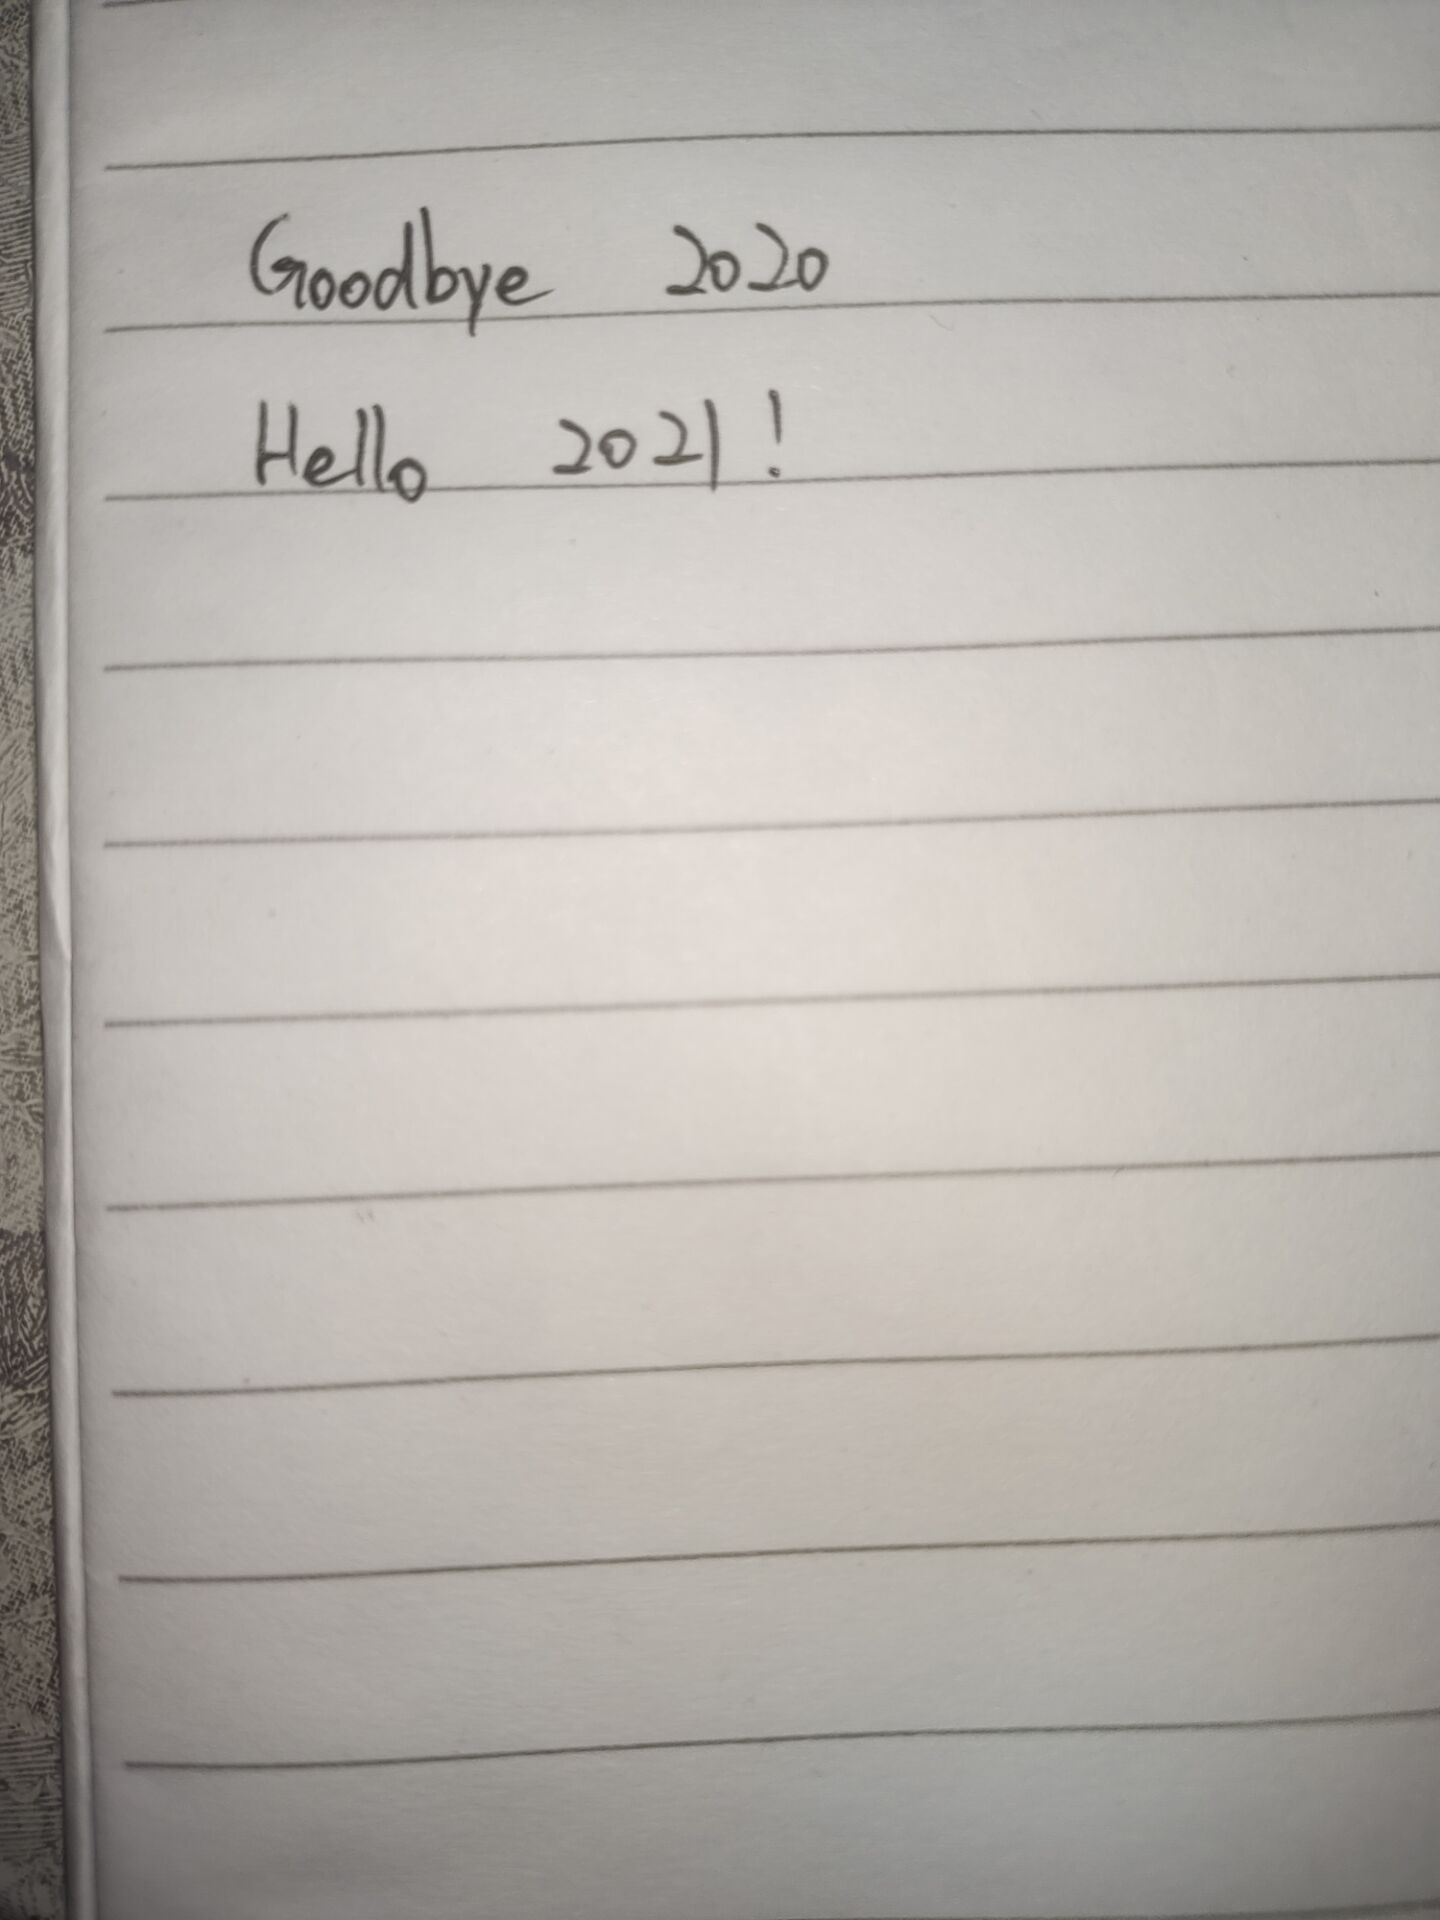 Goodbye 2020
Hello 2021!